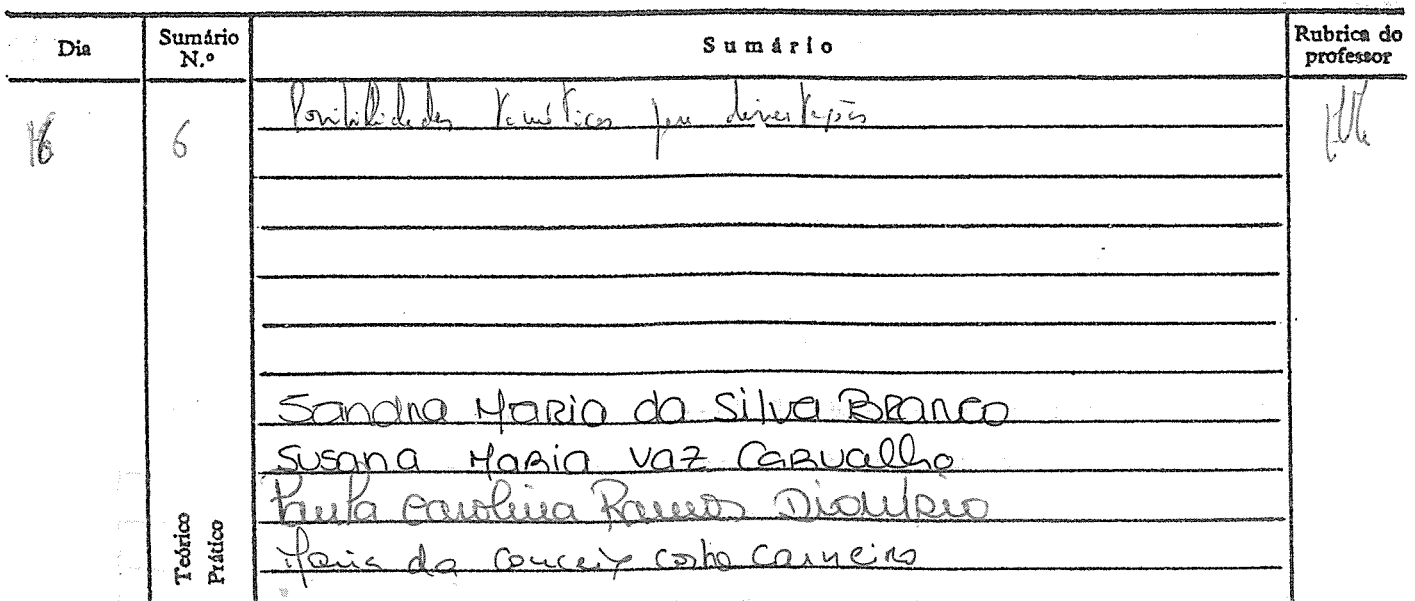 Dia Sumário N.º Sumário Rubrica do professor
16 6 Possibilidades temáticas para dissertação
Sandra Maria da Silva Branco
Susana Maria Vaz Carvalho
Paula Carolina Ramos Dionísio
Maria da Costa Carneiro
Teórico
Prático